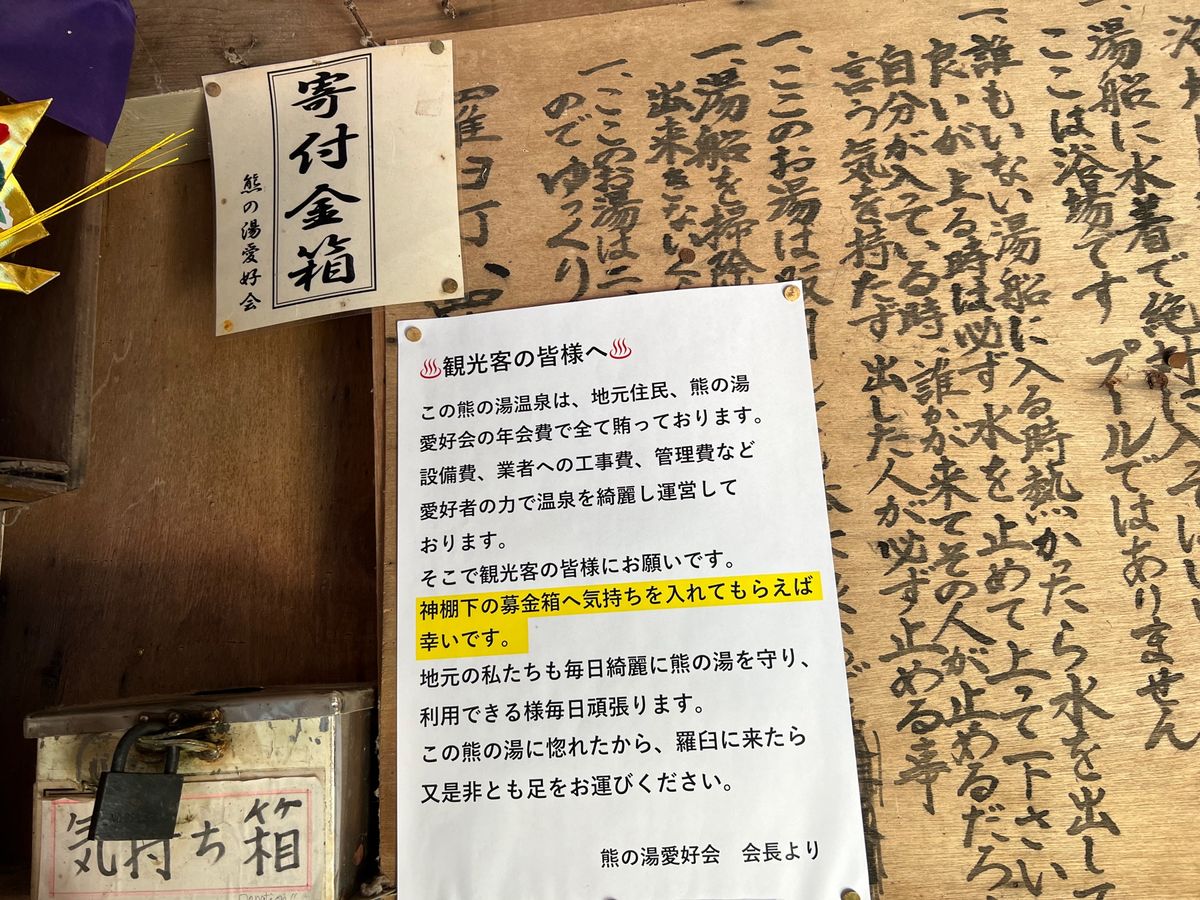 寄付金箱
熊の湯愛好会
♨観光客の皆様へ♨
この熊の湯温泉は、地元住民、熊の湯
愛好会の年会費で全て賄っております。
設備費、業者への工事費、管理費など
愛好者の力で温泉を綺麗し運営して
おります。
そこで観光客の皆様にお願いです。
神棚下の募金箱へ気持ちを入れてもらえば
幸いです。
地元の私たちも毎日綺麗に熊の湯を守り、
利用できる様毎日頑張ります。
この熊の湯に惚れたから、羅臼に来たら
又是非とも足をお運びください。
熊の湯愛好会 会長より
気持ち箱
一、湯船に水着で絶対に入
ここは浴場です プールではありません
一、誰もいない湯船に入る時熱かったら水を出して
良いが上る時は必ず水を止めて上って下さい
自分が入っている時、誰かが来てその人が止めるだろ
言う気を持たず 出した人が必ず止める事
一、ここのお湯は
一、湯船を掃除
出来きない
一、ここのお湯は二
のでゆっくり